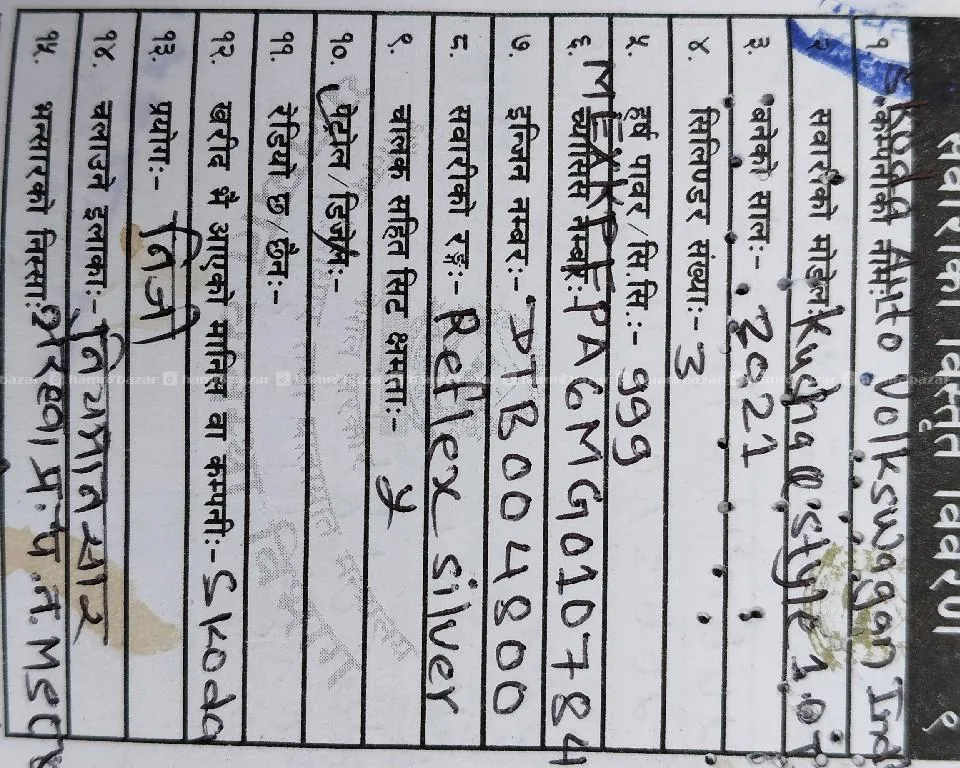 सवारीको विस्तृत विवरण १
१. कम्पनीको नाम:- Skoda Auto Volkswagan Ind
२. सवारीको मोडेल:- Kushaq style 1.0T
३. बनेको साल:- 2021
४. सिलिण्डर संख्या:- 3
५. हर्ष पावर/सि.सि.:- 999
६. च्यासिस नम्बर: MEXKPEPAGMG010784
७. इन्जिन नम्बर:- DTB004800
८. सवारीको रङ्ग:- Reflex silver
९. चालक सहित सिट क्षमता:- ५
१०. पेट्रोल/डिजेल:-
११. रेडियो छ/छैन:-
१२. खरीद भै आएको मानिस वा कम्पनी:- Skoda
१३. प्रयोग:- निजी
१४. चलाउने इलाका:-
१५. भन्सारको निस्सा:- प्र.प.नं. M
hamrobazar